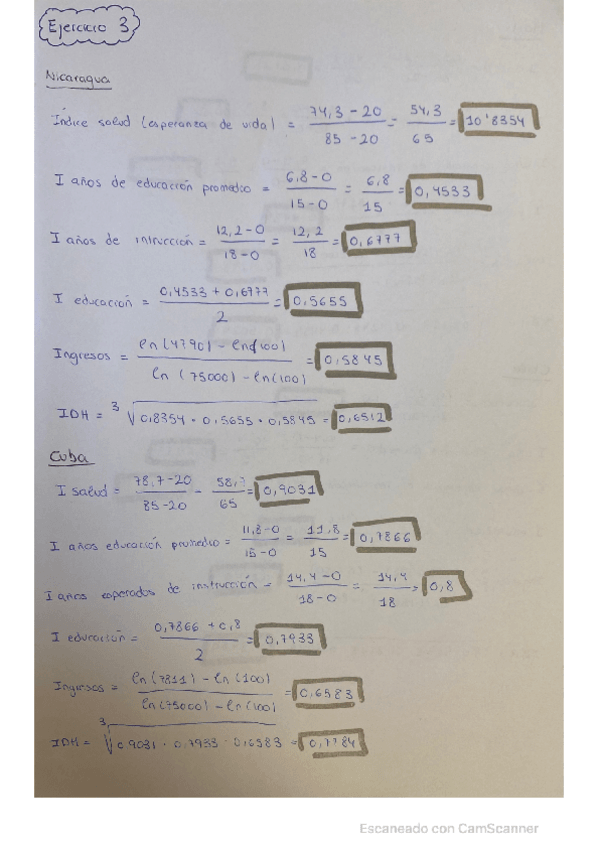 Ejercicio 3
Nicaragua
Índice salud (esperanza de vida) = 74,3 - 20 / 85 - 20 = 54,3 / 65 = 0'8354
I años de educación promedio = 6,8 - 0 / 15 - 0 = 6,8 / 15 = 0,4533
I años de intrucción = 12,2 - 0 / 18 - 0 = 12,2 / 18 = 0,6777
I educación = 0,4533 + 0,6777 / 2 = 0,5655
Ingresos = ln(4790) - ln(100) / ln(75000) - ln(100) = 0,5845
IDH = ³√0,8354 · 0,5655 · 0,5845 = 0,6512
Cuba
I salud = 78,7 - 20 / 85 - 20 = 58,7 / 65 = 0,9031
I años educación promedio = 11,8 - 0 / 15 - 0 = 11,8 / 15 = 0,7866
I años esperados de instrucción = 14,4 - 0 / 18 - 0 = 14,4 / 18 = 0,8
I educación = 0,7866 + 0,8 / 2 = 0,7933
Ingresos = ln(7811) - ln(100) / ln(75000) - ln(100) = 0,6583
IDH = ³√0,9031 · 0,7933 · 0,6583 = 0,7784
Escaneado con CamScanner